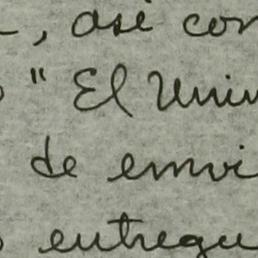 , así con
" El Univ
de envi
entregu